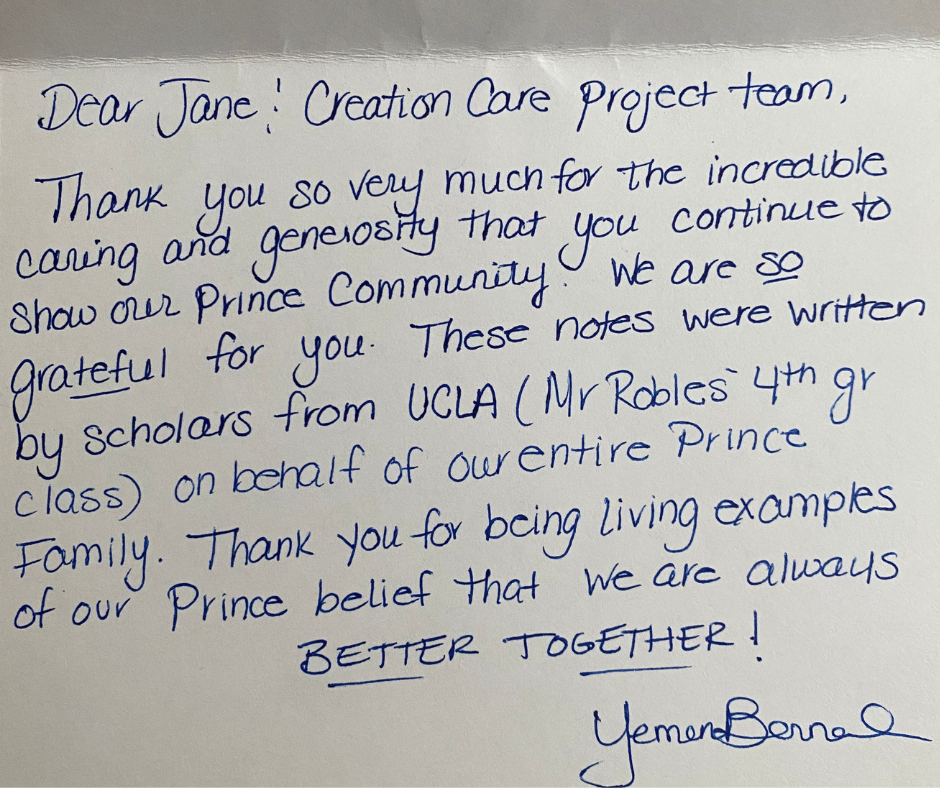 Dear Jane! Creation Care Project team,
Thank you so very much for the incredible
caring and generosity that you continue to
show our Prince Community! We are so
grateful for you. These notes were written
by scholars from UCLA (Mr Robles' 4th gr
class) on behalf of our entire Prince
Family. Thank you for being living examples
of our Prince belief that we are always
BETTER TOGETHER!